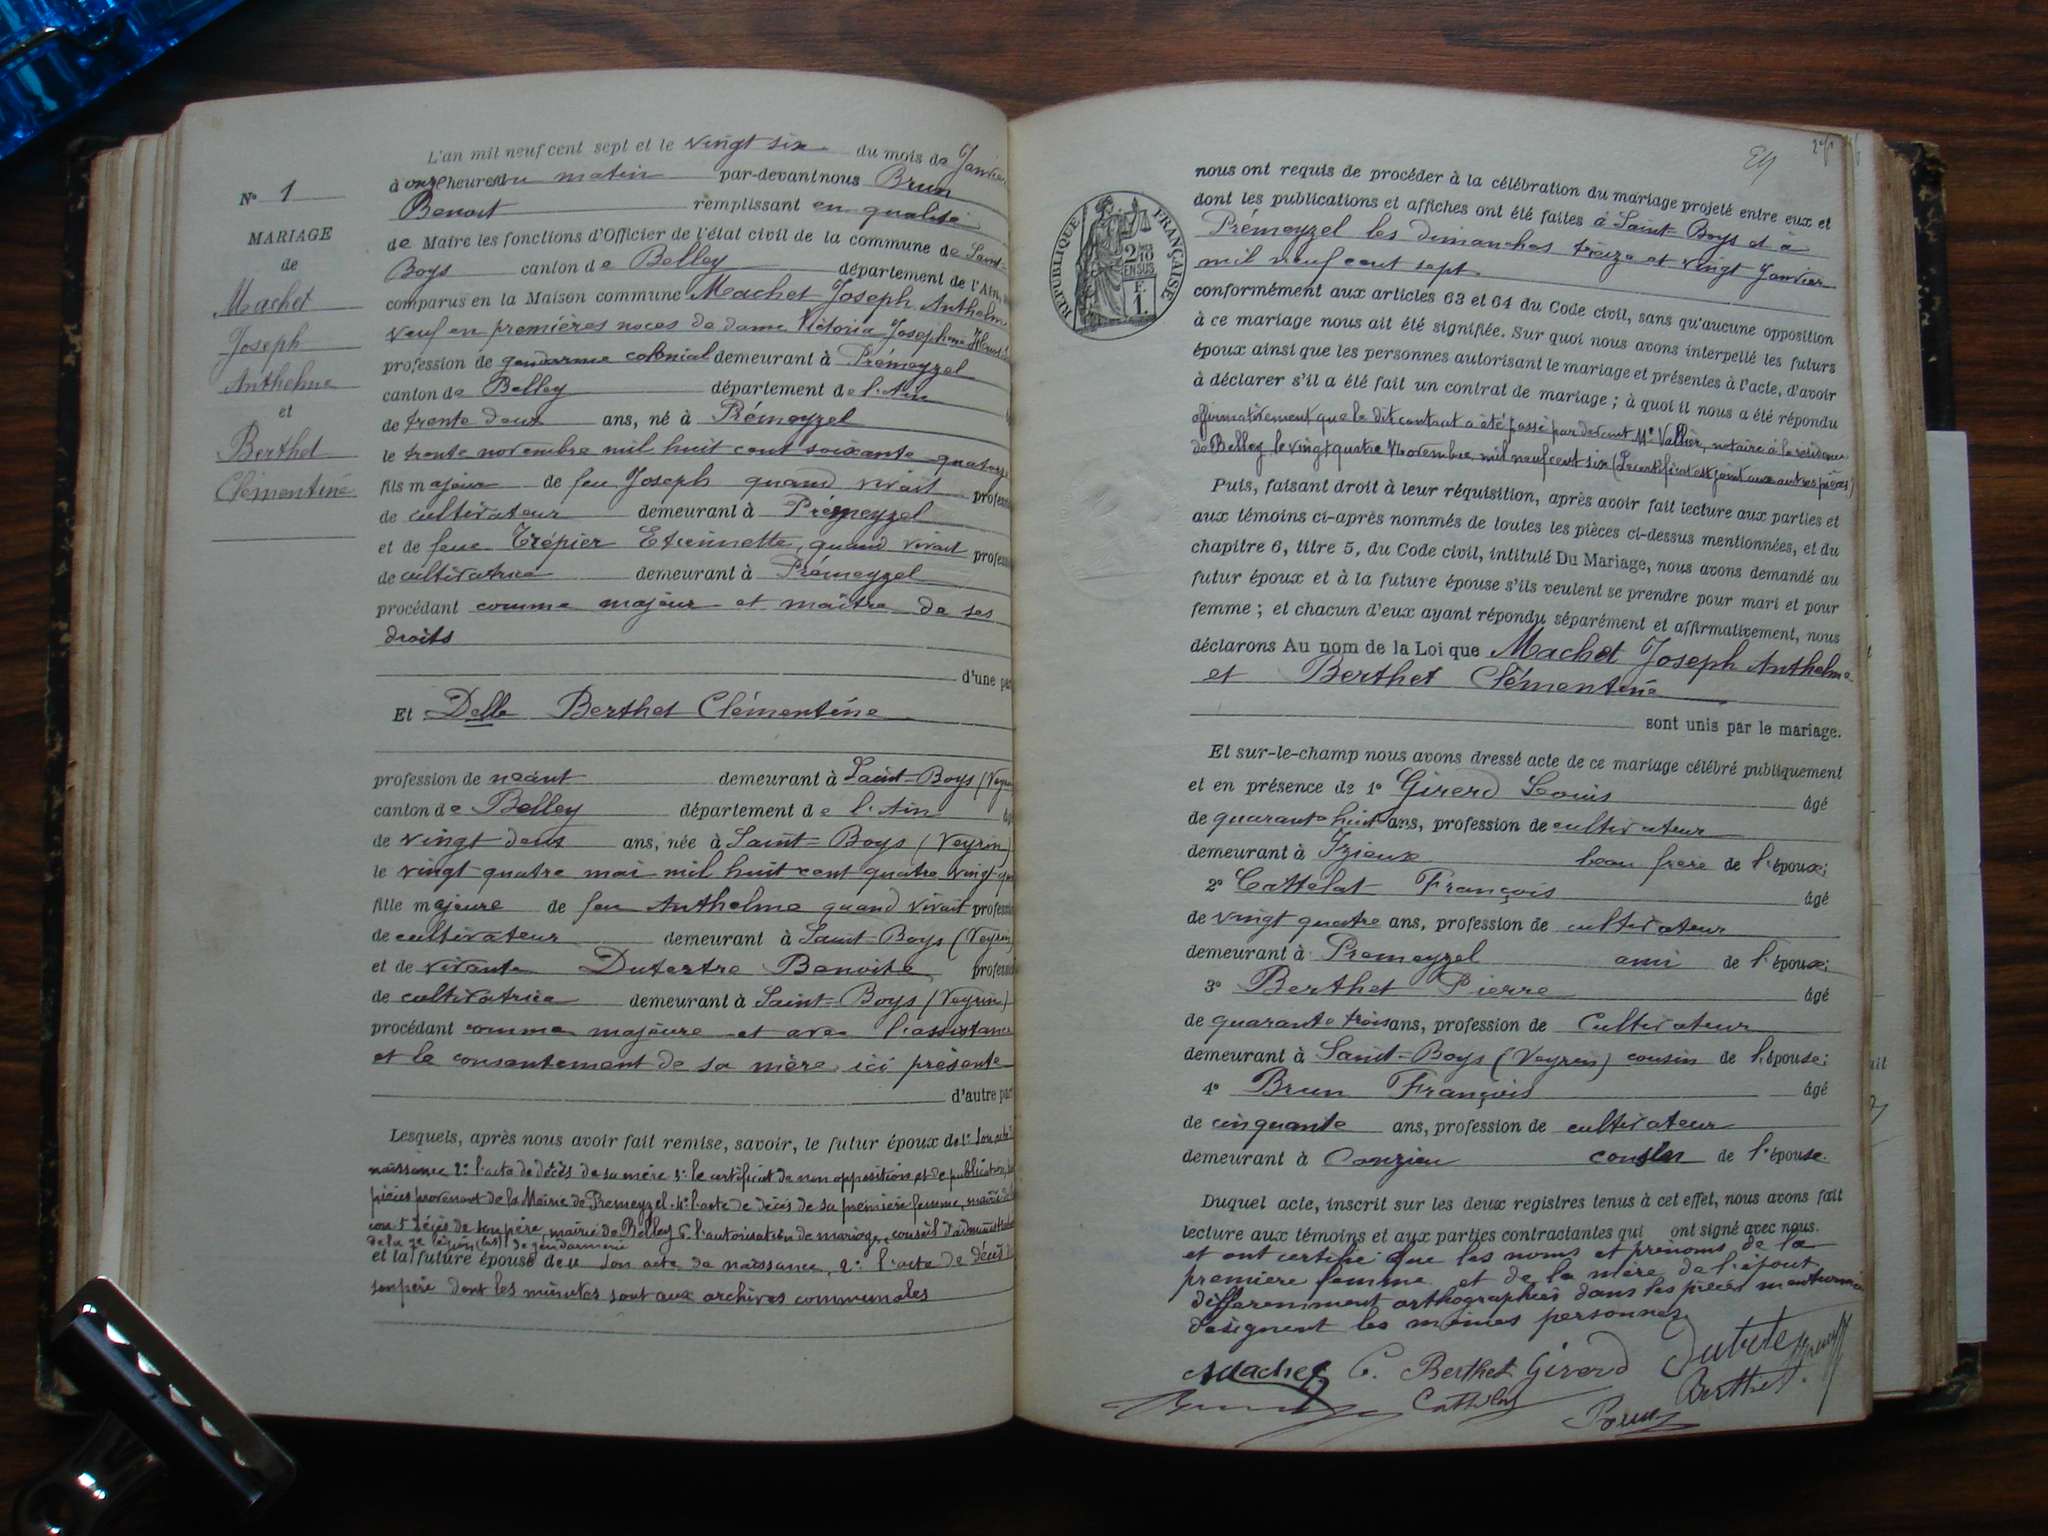 L'an mil neuf cent sept et le vingt six du mois de Janvier
à onze heures du matin par-devant nous Brun
Benoit remplissant en qualité
de Maire les fonctions d'Officier de l'état civil de la commune de Saint-
Boys canton de Belley département de l'Ain,
comparus en la Maison commune Machet Joseph Anthelme
veuf en premières noces de dame Victoria Josephine
profession de gendarme colonial demeurant à Prémeyzel
canton de Belley département de l'Ain
de trente deux ans, né à Prémeyzel
le trente novembre mil huit cent soixante quatorze
fils majeur de feu Joseph quand vivait profess
de cultivateur demeurant à Prémeyzel
et de feue Trépier Etiennette, quand vivait profess
de cultivatrice demeurant à Prémeyzel
procédant comme majeur et maître de ses
droits
d'une par
Et Delle Berthet Clémentine
profession de néant demeurant à Saint-Boys (Veyrin
canton de Belley département de l'Ain
de vingt deux ans, née à Saint-Boys (Veyrin)
le vingt quatre mai mil huit cent quatre vingt
fille majeure de feu Anthelme quand vivait professi
de cultivateur demeurant à Saint-Boys (Veyrin)
et de vivante Dutertre Benoite professi
de cultivatrice demeurant à Saint-Boys (Veyrin)
procédant comme majeure et avec l'assistance
et le consentement de sa mère ici présente
d'autre par
Lesquels, après nous avoir fait remise, savoir, le futur époux de 1° son acte
naissance 2° l'acte de décès de sa mère 3° le certificat de non opposition et de publication,
pièces provenant de la Mairie de Prémeyzel. 4° l'acte de décès de sa première femme, mairie de
5° décès de son père, mairie de Belley 6° l'autorisation de mariage, conseil d'administration
de la 7e légion (bis) de gendarmerie
et la future épouse de 1° son acte de naissance, 2° l'acte de décès
son père dont les minutes sont aux archives communales
N° 1
MARIAGE
de
Machet
Joseph
Anthelme
et
Berthet
Clémentine
RÉPUBLIQUE FRANÇAISE
2/10 EN SUS
F. 1.
nous ont requis de procéder à la célébration du mariage projeté entre eux et
dont les publications et affiches ont été faites à Saint-Boys et à
Prémeyzel les dimanches treize et vingt Janvier
mil neuf cent sept.
conformément aux articles 63 et 64 du Code civil, sans qu'aucune opposition
à ce mariage nous ait été signifiée. Sur quoi nous avons interpellé les futurs
époux ainsi que les personnes autorisant le mariage et présentes à l'acte, d'avoir
à déclarer s'il a été fait un contrat de mariage ; à quoi il nous a été répondu
affirmativement que le dit contrat a été passé par devant Me Vallier, notaire à la résidence
de Belley le vingt quatre Novembre mil neuf cent six (Le certificat est joint aux autres pièces)
Puis, faisant droit à leur réquisition, après avoir fait lecture aux parties et
aux témoins ci-après nommés de toutes les pièces ci-dessus mentionnées, et du
chapitre 6, titre 5, du Code civil, intitulé Du Mariage, nous avons demandé au
futur époux et à la future épouse s'ils veulent se prendre pour mari et pour
femme ; et chacun d'eux ayant répondu séparément et affirmativement, nous
déclarons Au nom de la Loi que Machet Joseph Anthelme
et Berthet Clémentine
sont unis par le mariage.
Et sur-le-champ nous avons dressé acte de ce mariage célébré publiquement
et en présence de 1° Girerd Louis âgé
de quarante huit ans, profession de cultivateur
demeurant à Izieux beau frère de l'époux;
2° Cattelat François âgé
de vingt quatre ans, profession de cultivateur
demeurant à Premeyzel ami de l'époux;
3° Berthet Pierre âgé
de quarante trois ans, profession de Cultivateur
demeurant à Saint-Boys (Veyrin) cousin de l'épouse;
4° Brun François âgé
de cinquante ans, profession de cultivateur
demeurant à Conzieu cousin de l'épouse.
Duquel acte, inscrit sur les deux registres tenus à cet effet, nous avons fait
lecture aux témoins et aux parties contractantes qui ont signé avec nous.
et ont certifié que les noms et prénoms de la
première femme et de la mère de l'époux
différemment orthographiés dans les pièces mentionnées
désignent les mêmes personnes.
Machet C. Berthet Girerd Dutertre
Berthet
Brun